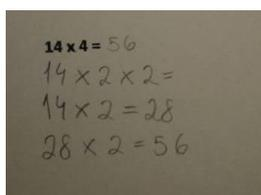 14 x 4 = 56
14 × 2 × 2 =
14 × 2 = 28
28 × 2 = 56